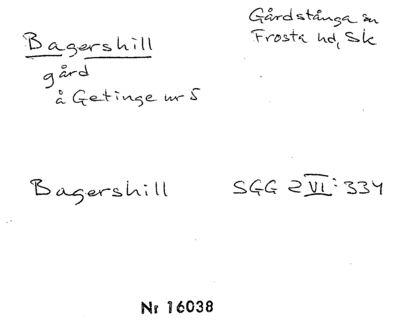 Bagershill
gård
å Getinge nr 5
Gårdstånga sn
Frosta hd, Sk
Bagershill
SGG 2 VI: 334
Nr 16038